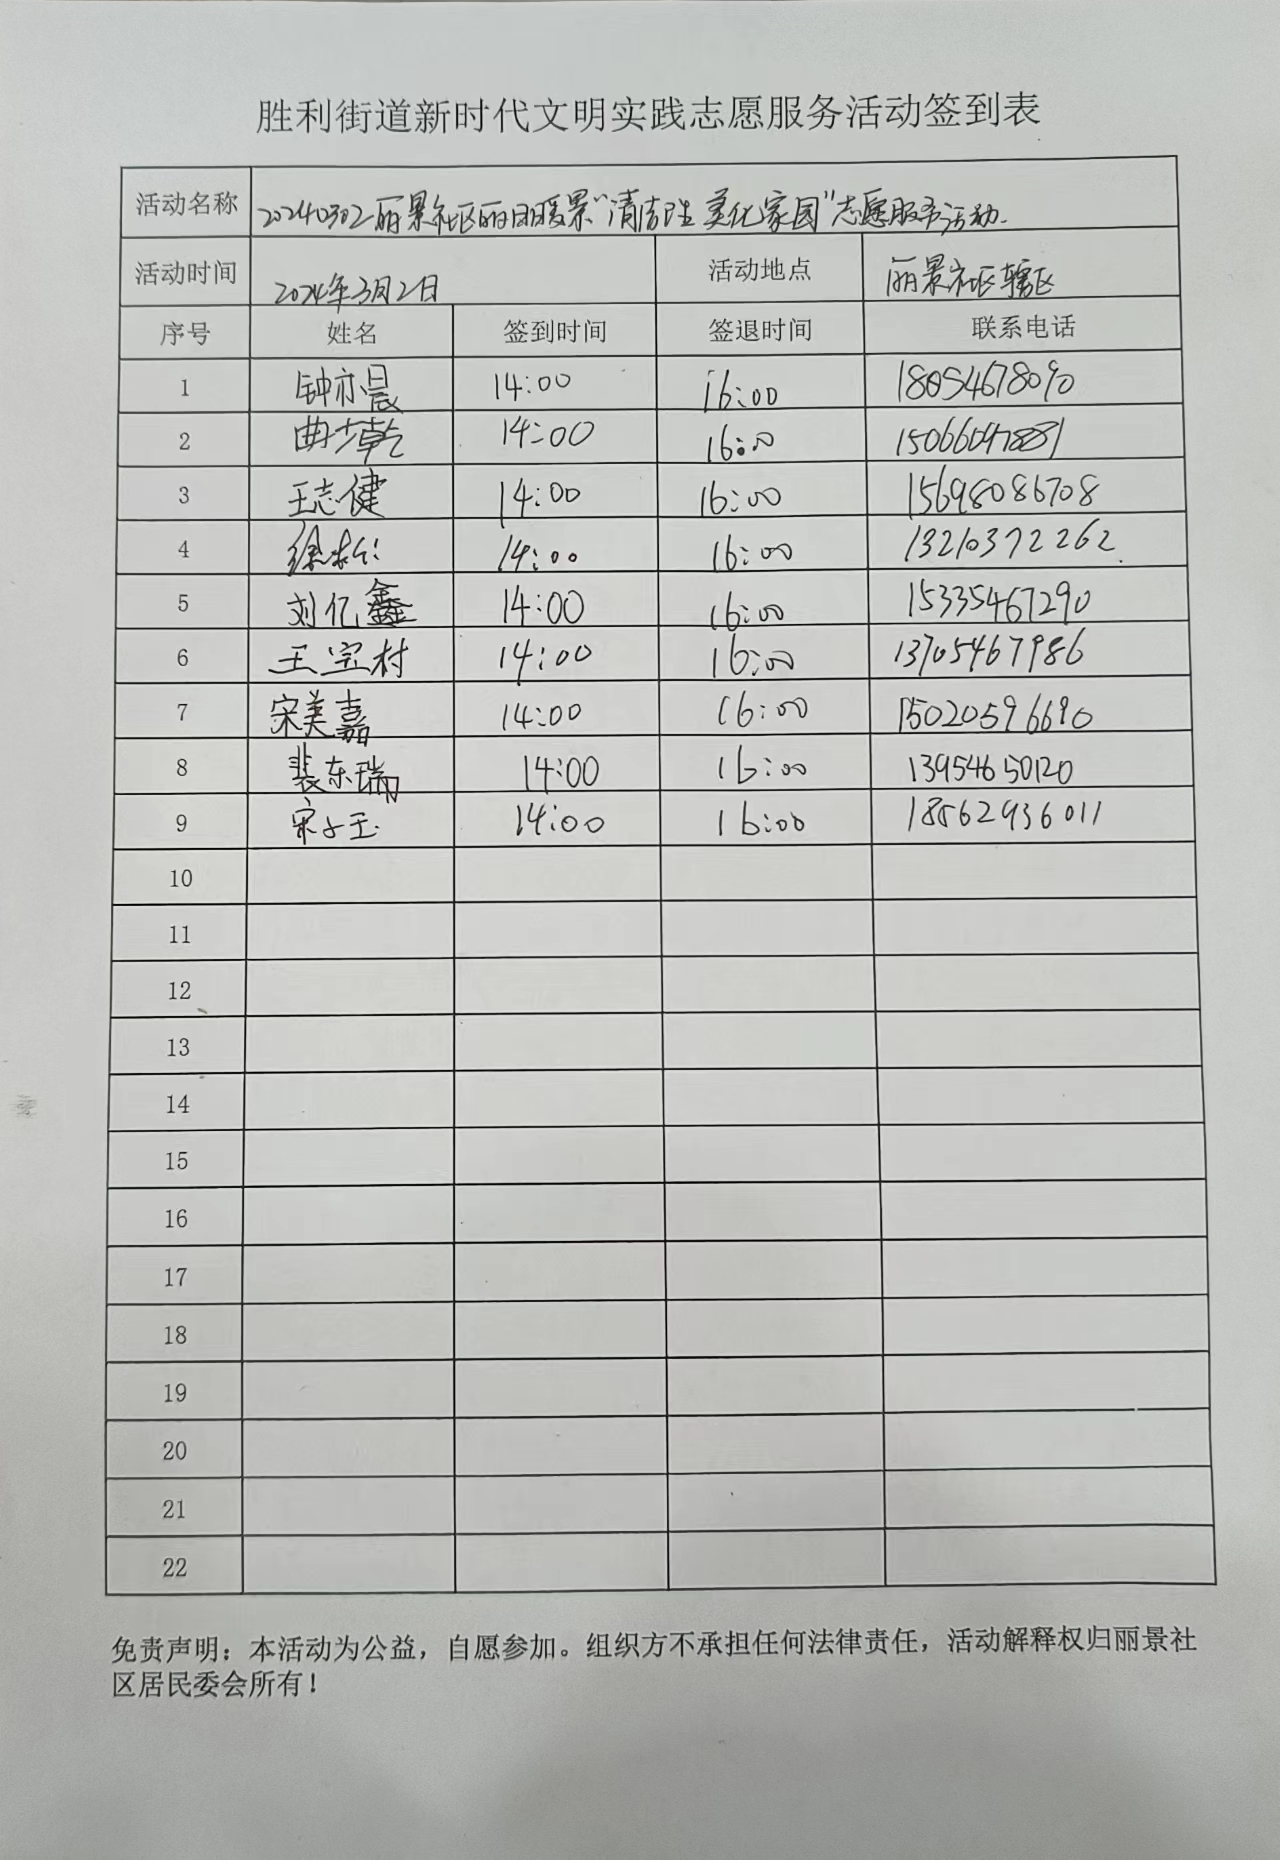 胜利街道新时代文明实践志愿服务活动签到表
活动名称 20240302丽景社区丽日暖景“清洁卫生 美化家园”志愿服务活动.
活动时间 2024年3月2日 活动地点 丽景社区辖区
序号 姓名 签到时间 签退时间 联系电话
1 钟亦晨 14:00 16:00 18054678090
2 曲少乾 14:00 16:00 15066047881
3 王志健 14:00 16:00 15698086708
4 徐 14:00 16:00 13210372262
5 刘亿鑫 14:00 16:00 15335467290
6 王宝村 14:00 16:00 13705467986
7 宋美嘉 14:00 16:00 15020596690
8 裴东瑞 14:00 16:00 13954650120
9 宋子玉 14:00 16:00 18562936011
10
11
12
13
14
15
16
17
18
19
20
21
22
免责声明：本活动为公益，自愿参加。组织方不承担任何法律责任，活动解释权归丽景社
区居民委会所有！